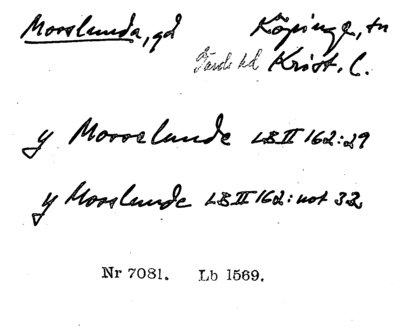 Morslunda, gd Köpinge, tn
Gärds hd Krist. l.
y Morselunde LB II 162:29
y Morslunde LB II 162: not 32
Nr 7081. Lb 1569.